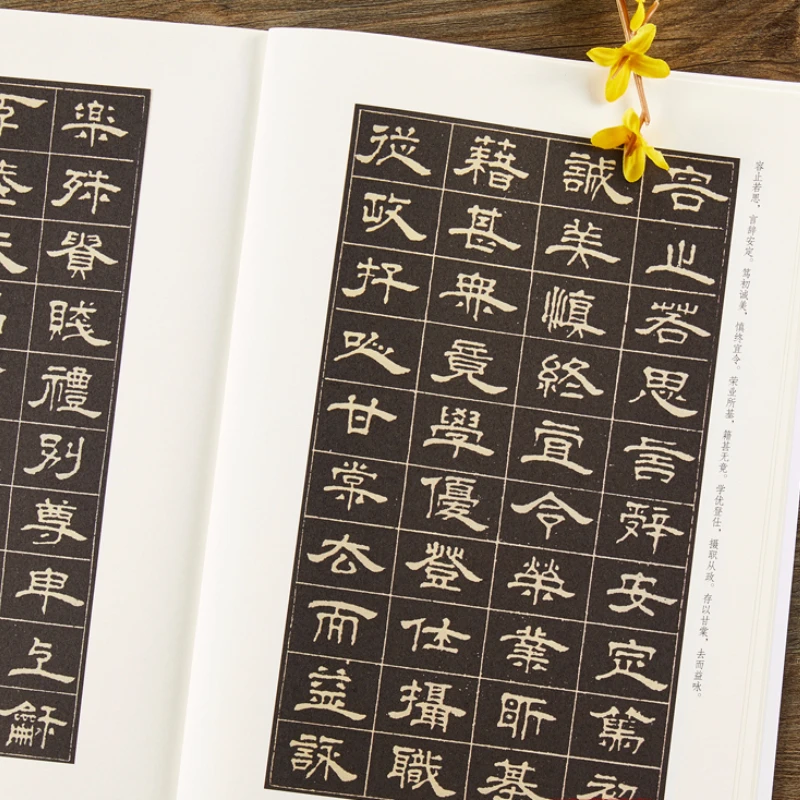 容止若思，言辞安定。笃初诚美，慎终宜令。荣业所基，籍甚无竟。学优登仕，摄职从政。存以甘棠，去而益咏。
容止若思言辭安定篤初
誠美慎終宜令榮業所基
藉甚無竟學優登仕攝職
從政存以甘棠去而益詠
樂殊貴賤禮別尊卑上和